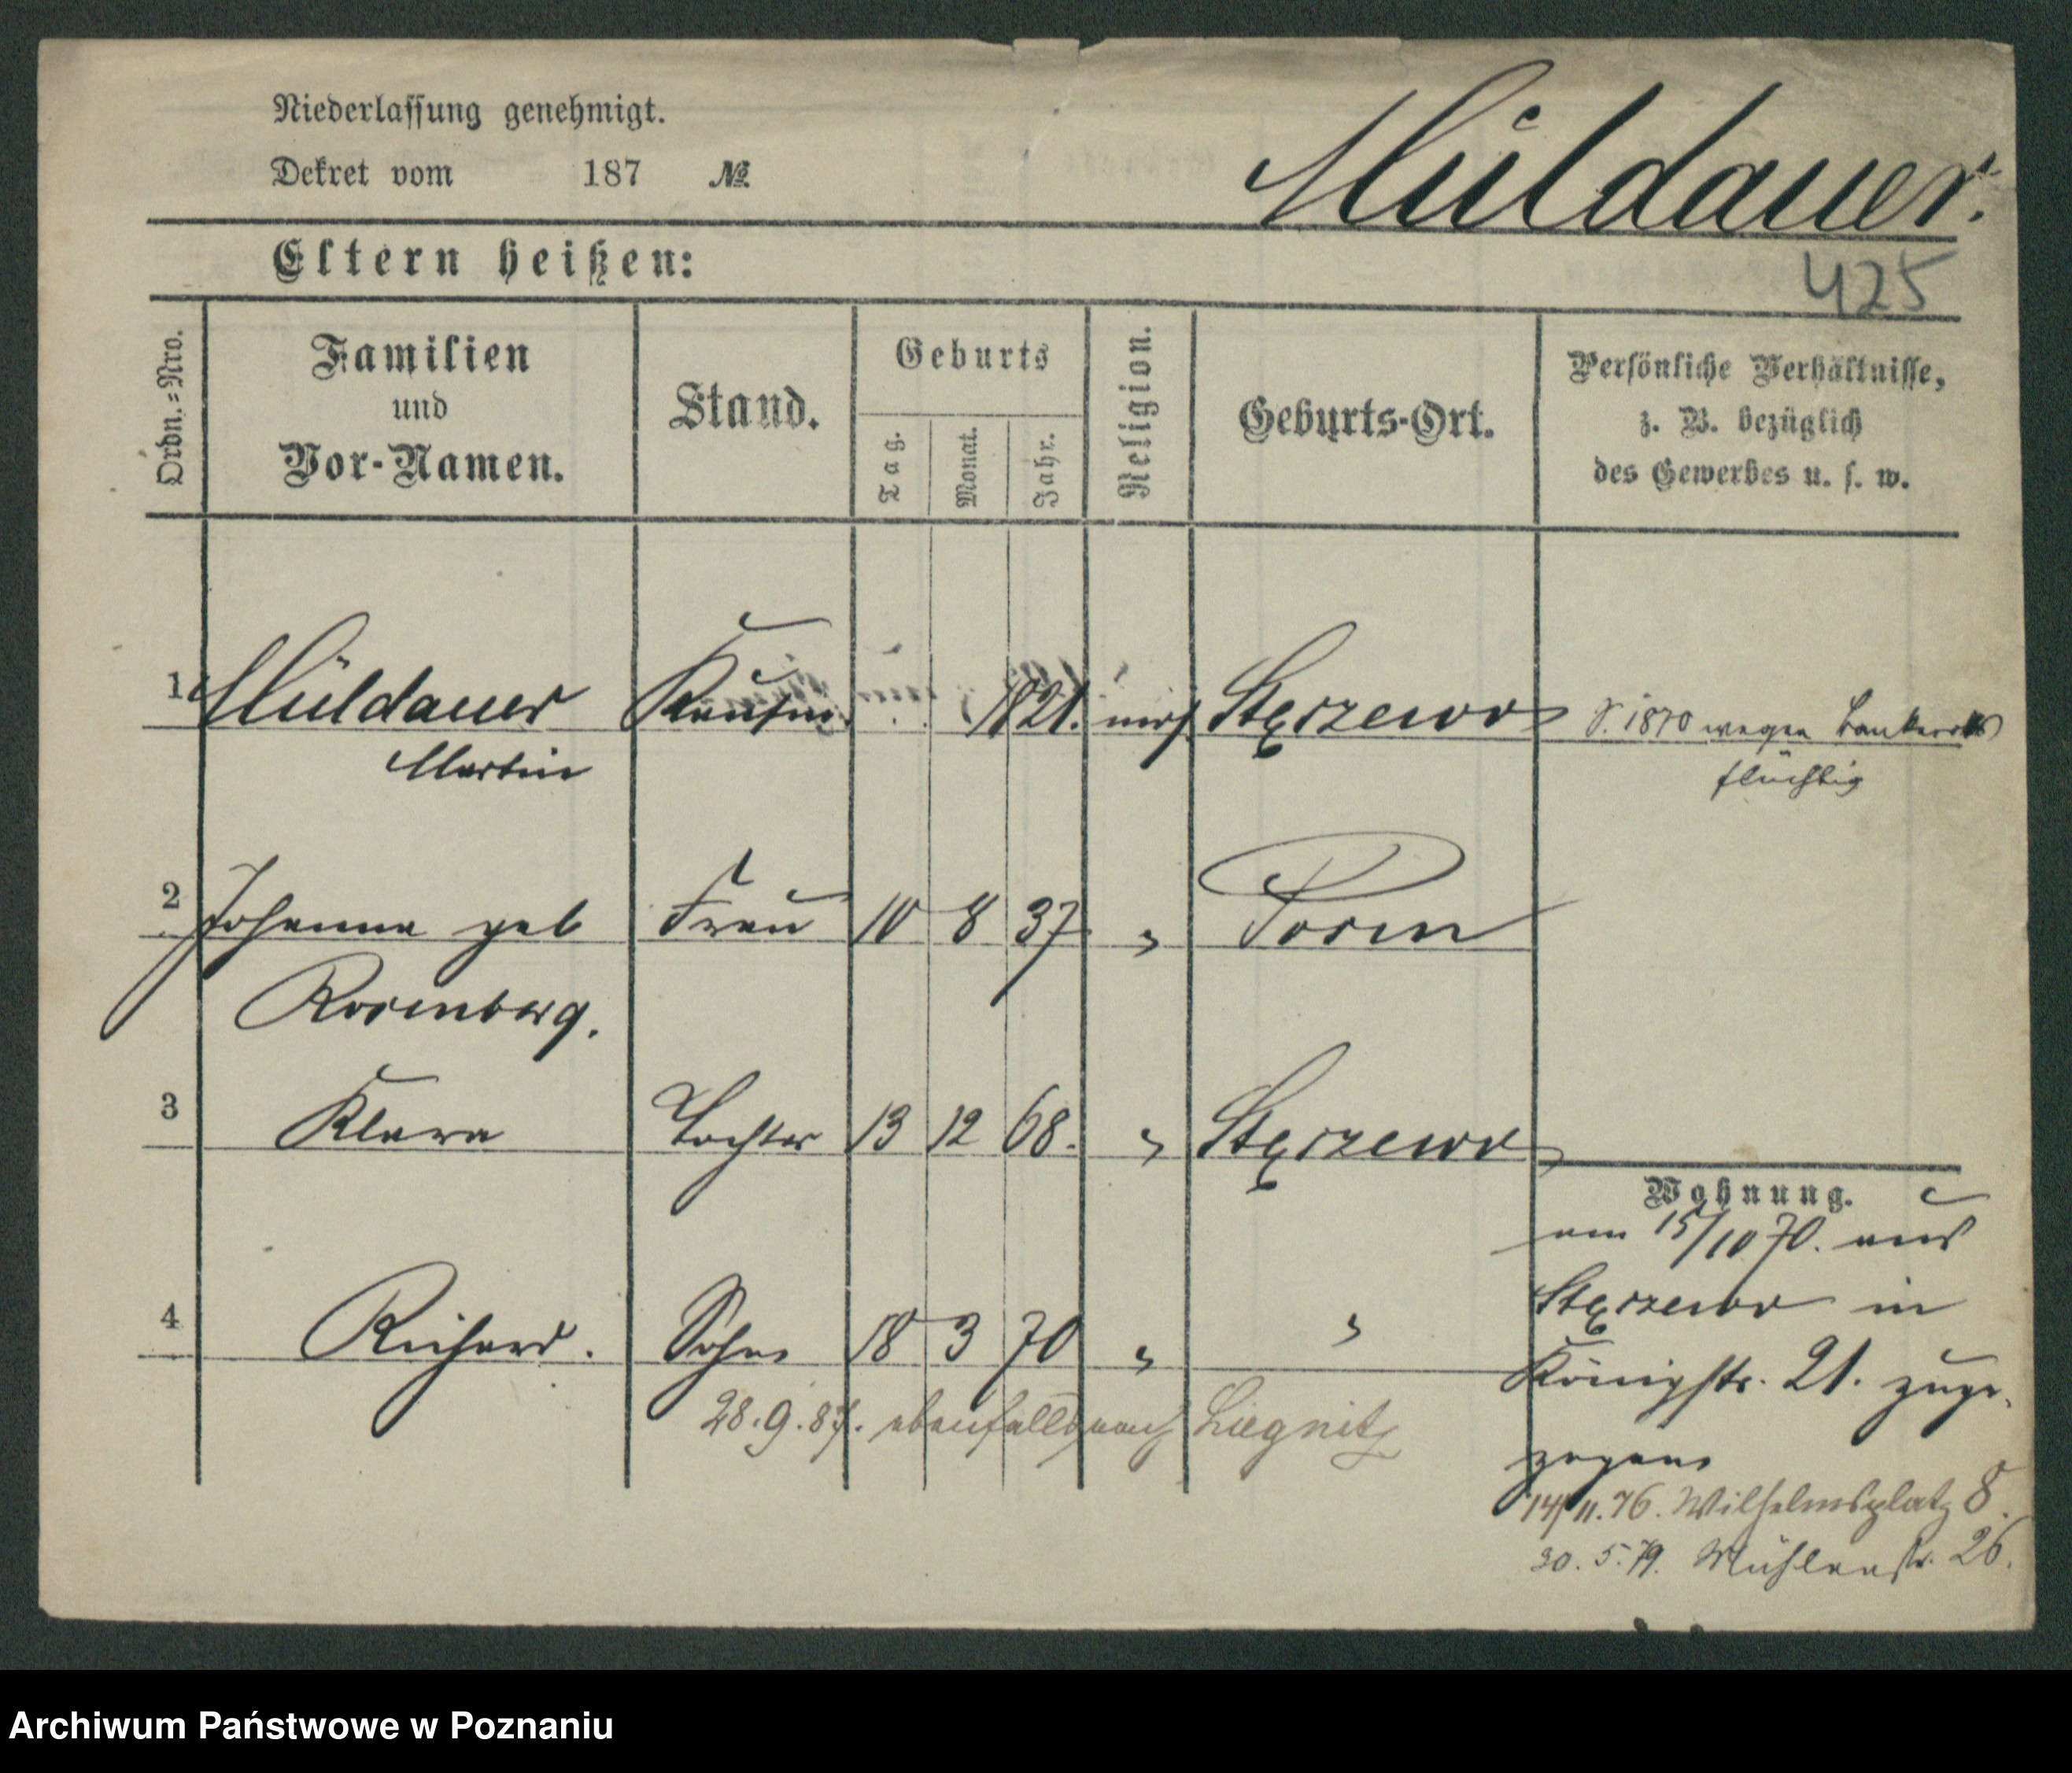 Niederlassung genehmigt.
Dekret vom 187 №
Müldauer.
425
Eltern heißen:
Ordn.=Nro.
Familien und Vor-Namen.
Stand.
Geburts
Tag.
Monat.
Jahr.
Religion.
Geburts-Ort.
Persönliche Verhältnisse, z. B. bezüglich des Gewerbes u. s. w.
1 Müldauer Kaufm. 1821. mos. Stęszewo 1870 wegen Bankerott
Martin flüchtig
2 Johanna geb Frau 10 8 37 " Posen
Rosenberg.
3 Klara Tochter 13 12 68. " Stęszewo
4 Richard. Sohn 18 3 70 " "
28.9.87. ebenfalls nach Liegnitz
Wohnung.
am 15/10 70. aus
Stęszewo in
Königstr. 21. zuge-
zogen
14/11.76. Wilhelmsplatz 8.
30.5.79. Mühlenstr. 26.
Archiwum Państwowe w Poznaniu